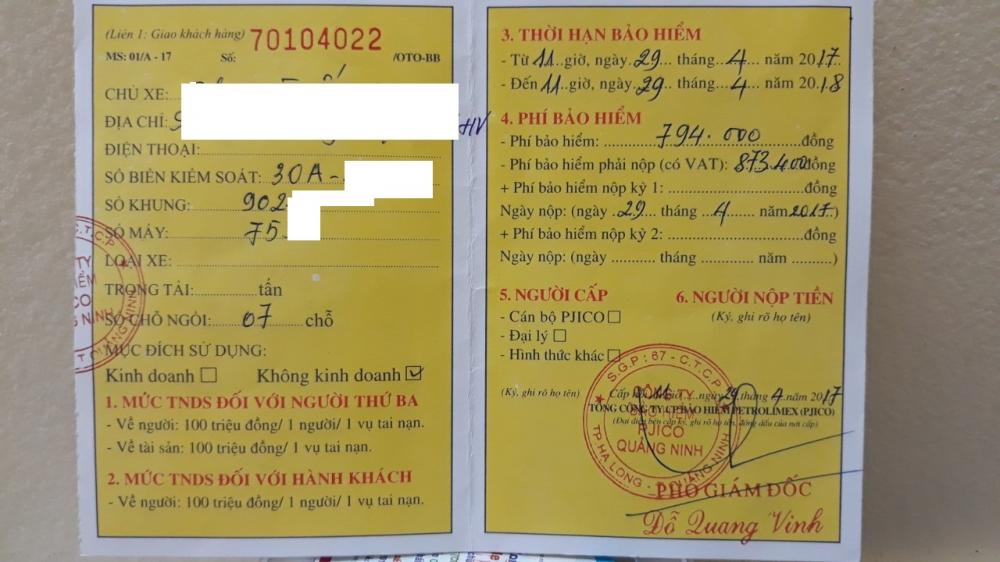 (Liên 1: Giao khách hàng) 70104022
MS: 01/A - 17 Số: /OTO-BB
CHỦ XE:
ĐỊA CHỈ: HV
ĐIỆN THOẠI:
SỐ BIỂN KIỂM SOÁT: 30A -
SỐ KHUNG: 902
SỐ MÁY: 75
LOẠI XE:
TRỌNG TẢI: tấn
SỐ CHỖ NGỒI: 07 chỗ
MỤC ĐÍCH SỬ DỤNG:
Kinh doanh ☐ Không kinh doanh ☑
1. MỨC TNDS ĐỐI VỚI NGƯỜI THỨ BA
- Về người: 100 triệu đồng/ 1 người/ 1 vụ tai nạn.
- Về tài sản: 100 triệu đồng/ 1 vụ tai nạn.
2. MỨC TNDS ĐỐI VỚI HÀNH KHÁCH
- Về người: 100 triệu đồng/ 1 người/ 1 vụ tai nạn.
3. THỜI HẠN BẢO HIỂM
- Từ 11 giờ, ngày 29 tháng 4 năm 2017
- Đến 11 giờ, ngày 29 tháng 4 năm 2018
4. PHÍ BẢO HIỂM
- Phí bảo hiểm: 794.000 đồng
- Phí bảo hiểm phải nộp (có VAT): 873.400 đồng
+ Phí bảo hiểm nộp kỳ 1: đồng
Ngày nộp: (ngày 29 tháng 4 năm 2017)
+ Phí bảo hiểm nộp kỳ 2: đồng
Ngày nộp: (ngày tháng năm )
5. NGƯỜI CẤP 6. NGƯỜI NỘP TIỀN
- Cán bộ PJICO ☐ (Ký, ghi rõ họ tên)
- Đại lý ☐
- Hình thức khác ☐
(Ký, ghi rõ họ tên) Cấp hồi 11 giờ ngày 29 tháng 4 năm 2017
TỔNG CÔNG TY CP BẢO HIỂM PETROLIMEX (PJICO)
(Đại diện bên cấp ký, ghi rõ họ tên, đóng dấu của nơi cấp)
S.G.P : 67 - C.T.C.P
CÔNG TY
BẢO HIỂM
PJICO
QUẢNG NINH
TP HẠ LONG - T. QUẢNG NINH
PHÓ GIÁM ĐỐC
Đỗ Quang Vinh